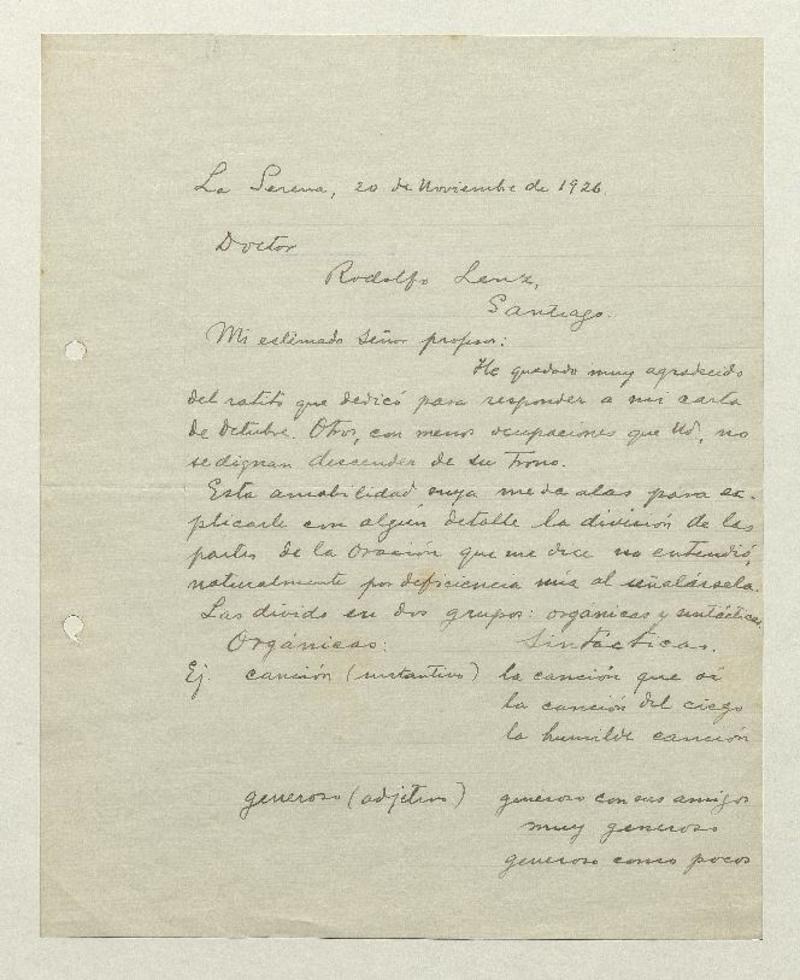 La Serena, 20 de Noviembre de 1926.
Doctor
Rodolfo Lenz,
Santiago.
Mi estimado señor profesor:
He quedado muy agradecido
del ratito que dedicó para responder a mi carta
de Octubre. Otros, con menos ocupaciones que Ud, no
se dignan descender de su trono.
Esta amabilidad suya me da alas para ex-
plicarle con algún detalle la división de las
partes de la oración que me dice no entendió,
naturalmente por deficiencia mía al señalársela.
Las divido en dos grupos: orgánicas y sintácticas.
Orgánicas: Sintácticas.
Ej. canción (sustantivo) la canción que oí
la canción del ciego
la humilde canción
generoso (adjetivo) generoso con sus amigos
muy generoso
generoso como pocos